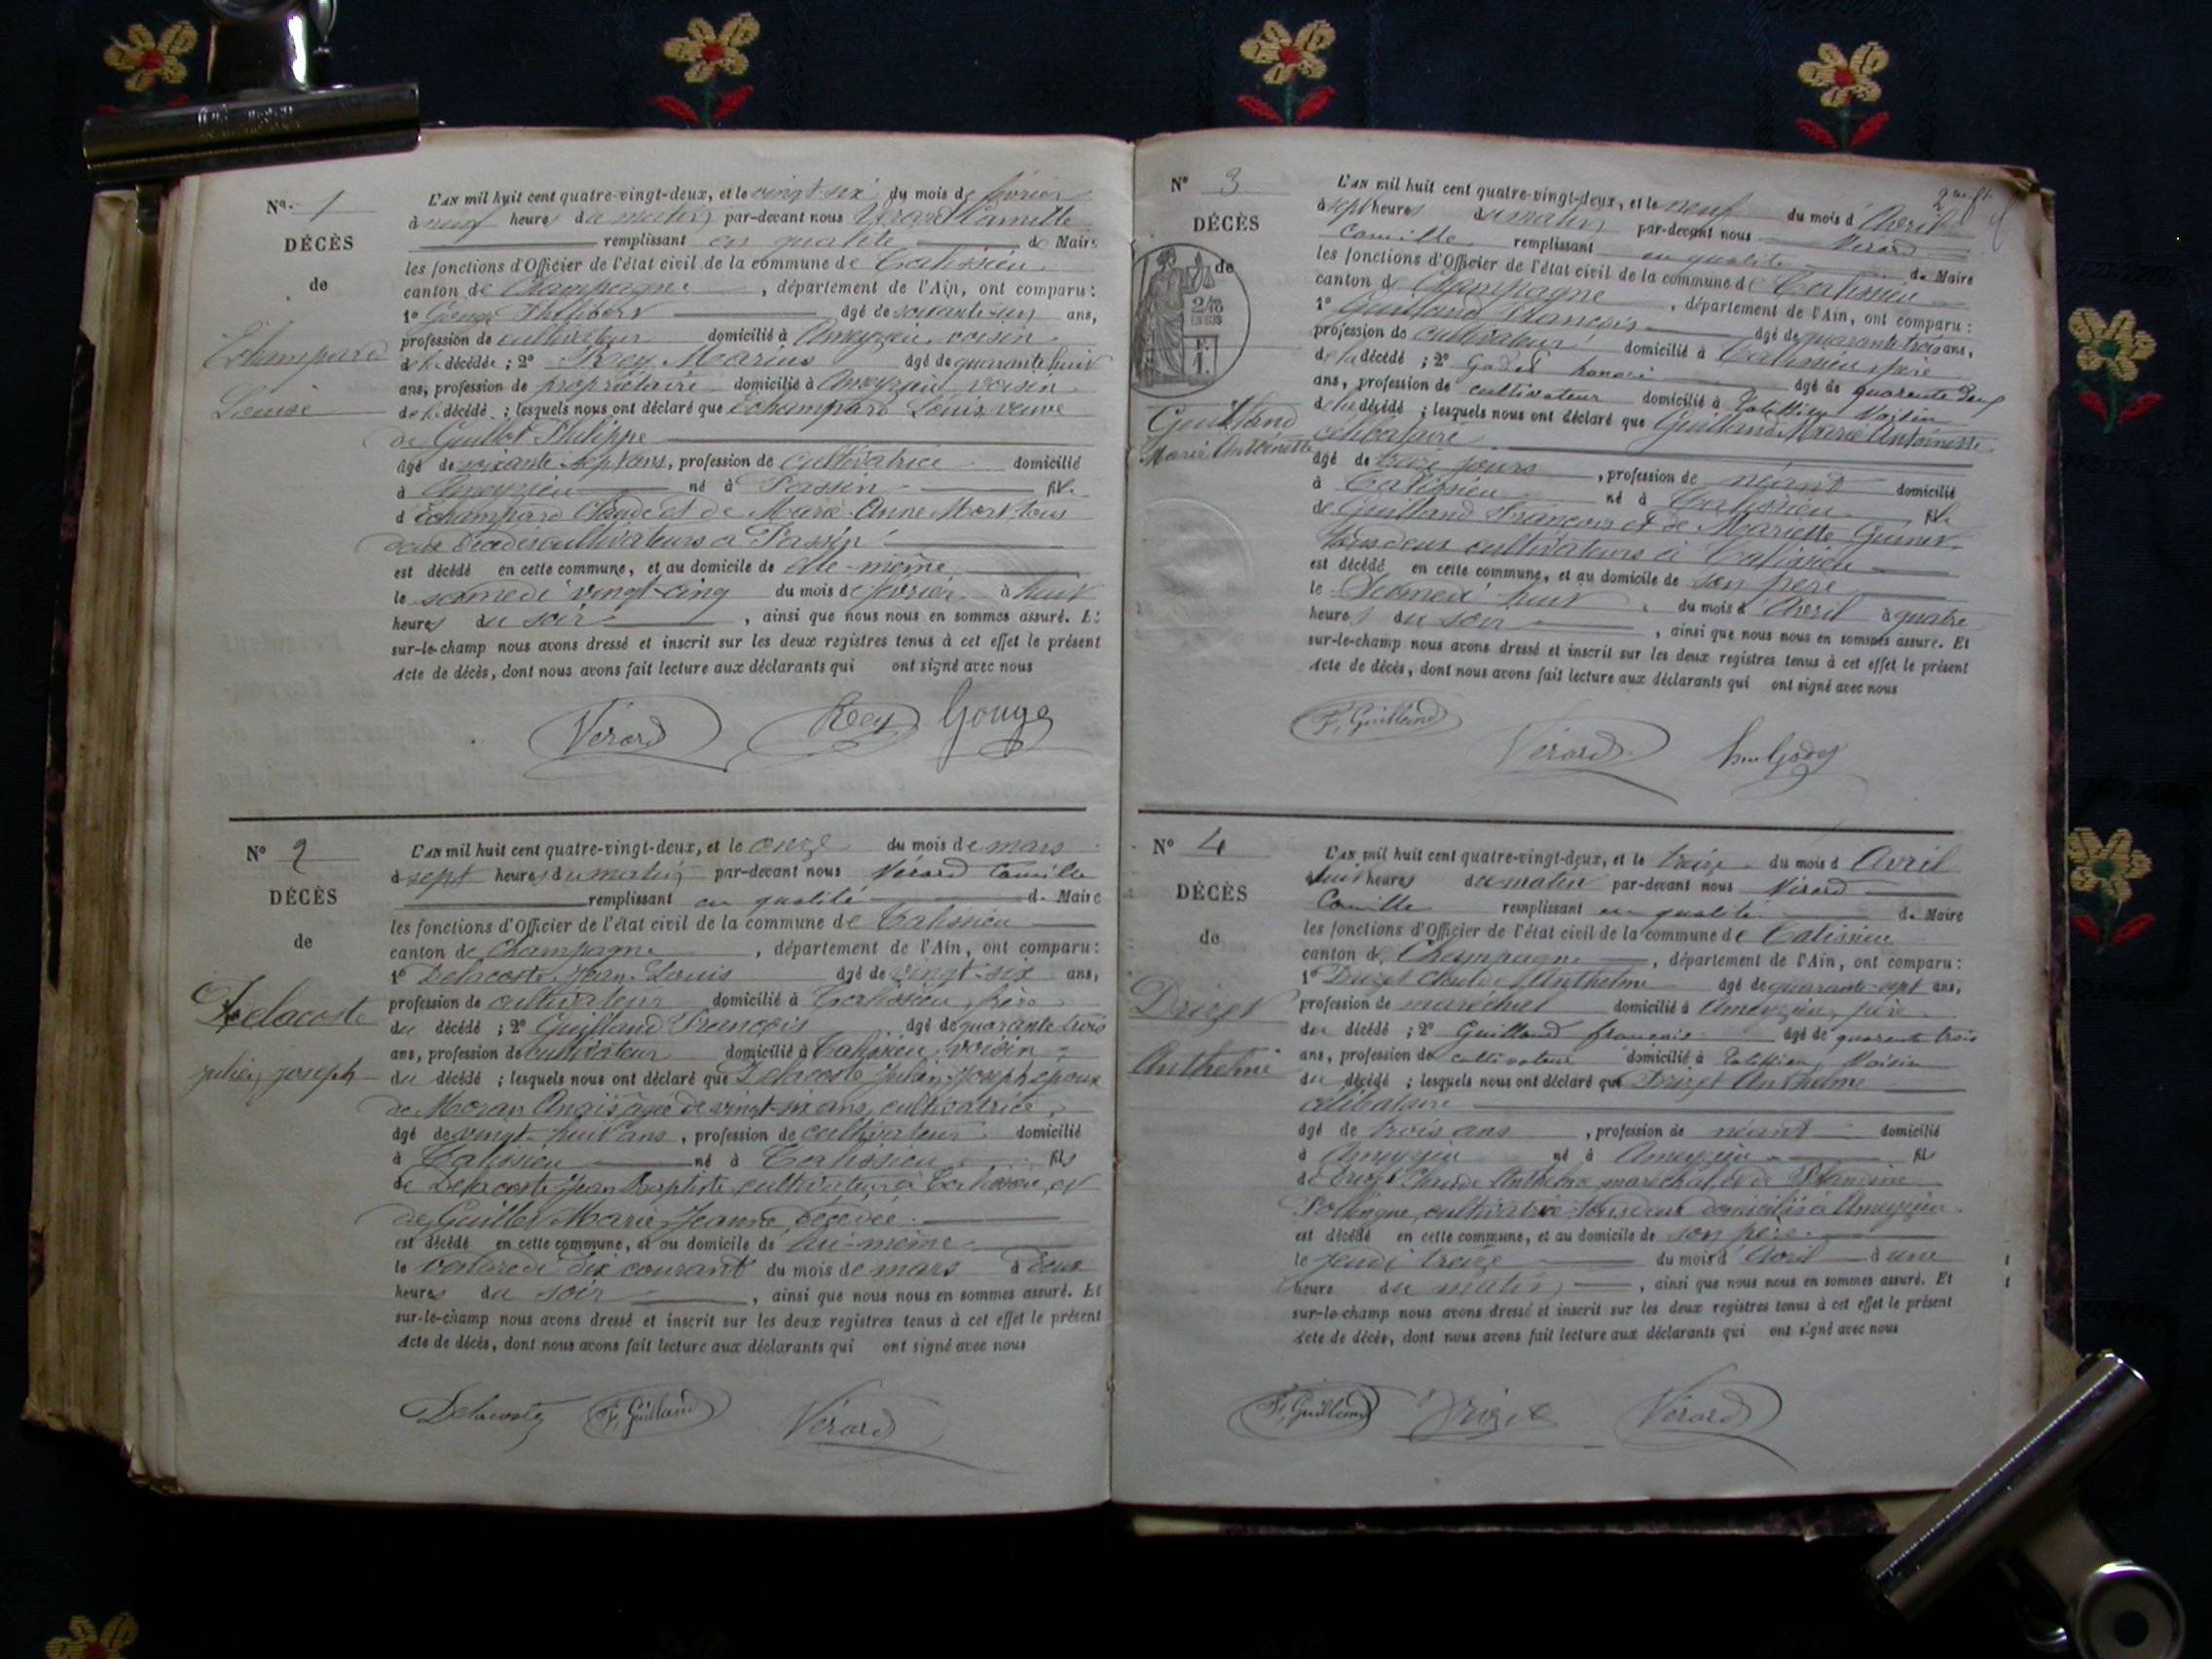 N° 1
DÉCÈS
de
Echampard
Louise
L'AN mil huit cent quatre-vingt-deux, et le vingt-six du mois de février
à neuf heures du matin par-devant nous Vérard Camille
remplissant en qualité de Maire
les fonctions d'Officier de l'état civil de la commune de Talissieu
canton de Champagne, département de l'Ain, ont comparu :
1° Gouge Philibert âgé de soixante-un ans,
profession de cultivateur domicilié à Ameyzieu voisin
de la décédée ; 2° Rey Marius âgé de quarante huit
ans, profession de propriétaire domicilié à Ameyzieu voisin
de la décédé ; lesquels nous ont déclaré que Echampard Louise veuve
de Guillot Philippe
âgé de soixante-sept ans, profession de cultivatrice domicilié
à Ameyzieu né à Passin fil
d Echampard Claude et de Marie-Anne Mort, tous
deux décédés cultivateurs à Passin
est décédé en cette commune, et au domicile de elle-même
le samedi vingt-cinq du mois de février à huit
heures du soir, ainsi que nous nous en sommes assuré. Et
sur-le-champ nous avons dressé et inscrit sur les deux registres tenus à cet effet le présent
Acte de décès, dont nous avons fait lecture aux déclarants qui ont signé avec nous
Vérard Rey Gouge
N° 2
DÉCÈS
de
Delacoste
julien joseph
L'AN mil huit cent quatre-vingt-deux, et le onze du mois de mars
à sept heures du matin par-devant nous Vérard Camille
remplissant en qualité de Maire
les fonctions d'Officier de l'état civil de la commune de Talissieu
canton de Champagne, département de l'Ain, ont comparu :
1° Delacoste Jean-Louis âgé de vingt-six ans,
profession de cultivateur domicilié à Talissieu, frère
du décédé ; 2° Guilland François âgé de quarante trois
ans, profession de cultivateur domicilié à Talissieu, voisin
du décédé ; lesquels nous ont déclaré que Delacoste Julien-Joseph époux
de Moran Anaïs âgée de vingt-six ans, cultivatrice,
âgé de vingt-huit ans, profession de cultivateur domicilié
à Talissieu né à Talissieu fils
de Delacoste Jean Baptiste, cultivateur à Talissieu, et
de Guillet Marie-Jeanne, décédée.
est décédé en cette commune, et au domicile de lui-même
le vendredi dix courant du mois de mars à deux
heures du soir, ainsi que nous nous en sommes assuré. Et
sur-le-champ nous avons dressé et inscrit sur les deux registres tenus à cet effet le présent
Acte de décès, dont nous avons fait lecture aux déclarants qui ont signé avec nous
Delacoste F. Guilland Vérard
N° 3
DÉCÈS
de
Guilland
Marie Antoinette
L'AN mil huit cent quatre-vingt-deux, et le neuf du mois d'Avril
à sept heures du matin par-devant nous Vérard
Camille remplissant en qualité de Maire
les fonctions d'Officier de l'état civil de la commune de Talissieu
canton de Champagne, département de l'Ain, ont comparu :
1° Guilland François âgé de quarante trois ans,
profession de cultivateur domicilié à Talissieu père
de la décédé ; 2° Godet honoré âgé de quarante deux
ans, profession de cultivateur domicilié à Talissieu Voisin
de la décédé ; lesquels nous ont déclaré que Guilland Marie Antoinette
célibataire
âgé de treize jours, profession de néant domicilié
à Talissieu né à Talissieu fil
de Guilland François et de Mariette
tous deux cultivateurs à Talissieu
est décédé en cette commune, et au domicile de son père
le Samedi huit du mois d Avril à quatre
heures du soir, ainsi que nous nous en sommes assuré. Et
sur-le-champ nous avons dressé et inscrit sur les deux registres tenus à cet effet le présent
Acte de décès, dont nous avons fait lecture aux déclarants qui ont signé avec nous
F. Guilland Vérard Godet
N° 4
DÉCÈS
de
Drizet
Anthelme
L'AN mil huit cent quatre-vingt-deux, et le treize du mois d Avril
à huit heures du matin par-devant nous Vérard
Camille remplissant en qualité de Maire
les fonctions d'Officier de l'état civil de la commune de Talissieu
canton de Champagne, département de l'Ain, ont comparu :
1° Drizet Claude Anthelme âgé de quarante-sept ans,
profession de maréchal domicilié à Ameyzieu, père
du décédé ; 2° Guilland françois âgé de quarante trois
ans, profession de cultivateur domicilié à Talissieu, Voisin
du décédé ; lesquels nous ont déclaré que Drizet Anthelme
célibataire
âgé de trois ans, profession de néant domicilié
à Ameyzieu né à Ameyzieu fils
de Drizet Claude Anthelme maréchal, et de Blandine
cultivatrice tous deux domiciliés à Ameyzieu.
est décédé en cette commune, et au domicile de son père.
le jeudi treize du mois d'Avril à une
heure du matin, ainsi que nous nous en sommes assuré. Et
sur-le-champ nous avons dressé et inscrit sur les deux registres tenus à cet effet le présent
Acte de décès, dont nous avons fait lecture aux déclarants qui ont signé avec nous
F. Guilland Drizet Vérard